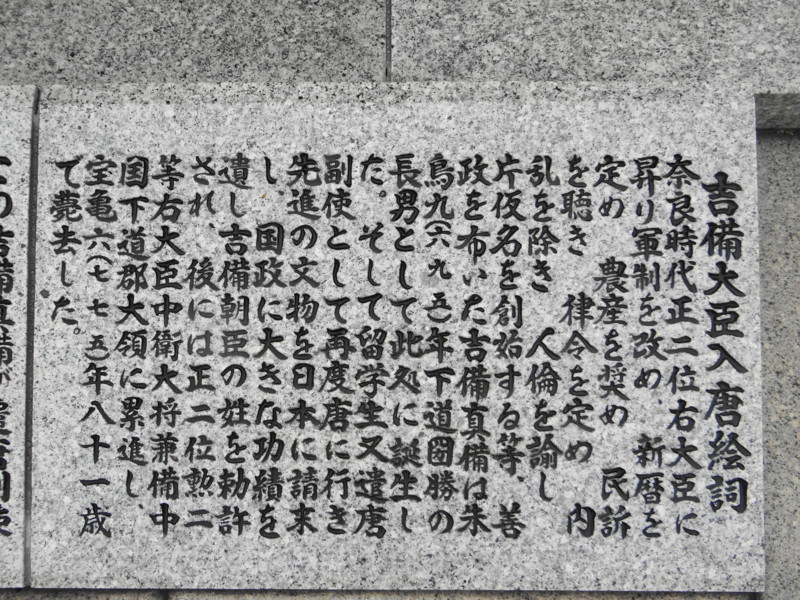 吉備大臣入唐絵詞
奈良時代正二位右大臣に
昇り軍制を改め、新暦を
定め 農産を奨め 民訴
を聴き 律令を定め 内
乱を除き 人倫を諭し
片仮名を創始する等、善
政を布いた吉備真備は朱
鳥九(六九五)年下道圀勝の
長男として此処に誕生し
た。そして留学生又遣唐
副使として再度唐に行き
先進の文物を日本に請来
し、国政に大きな功績を
遺し吉備朝臣の姓を勅許
され、後には正二位勲二
等右大臣中衛大将兼備中
国下道郡大領に累進し、
宝亀六(七七五)年八十一歳
で薨去した。
の吉備真備が遣唐副使